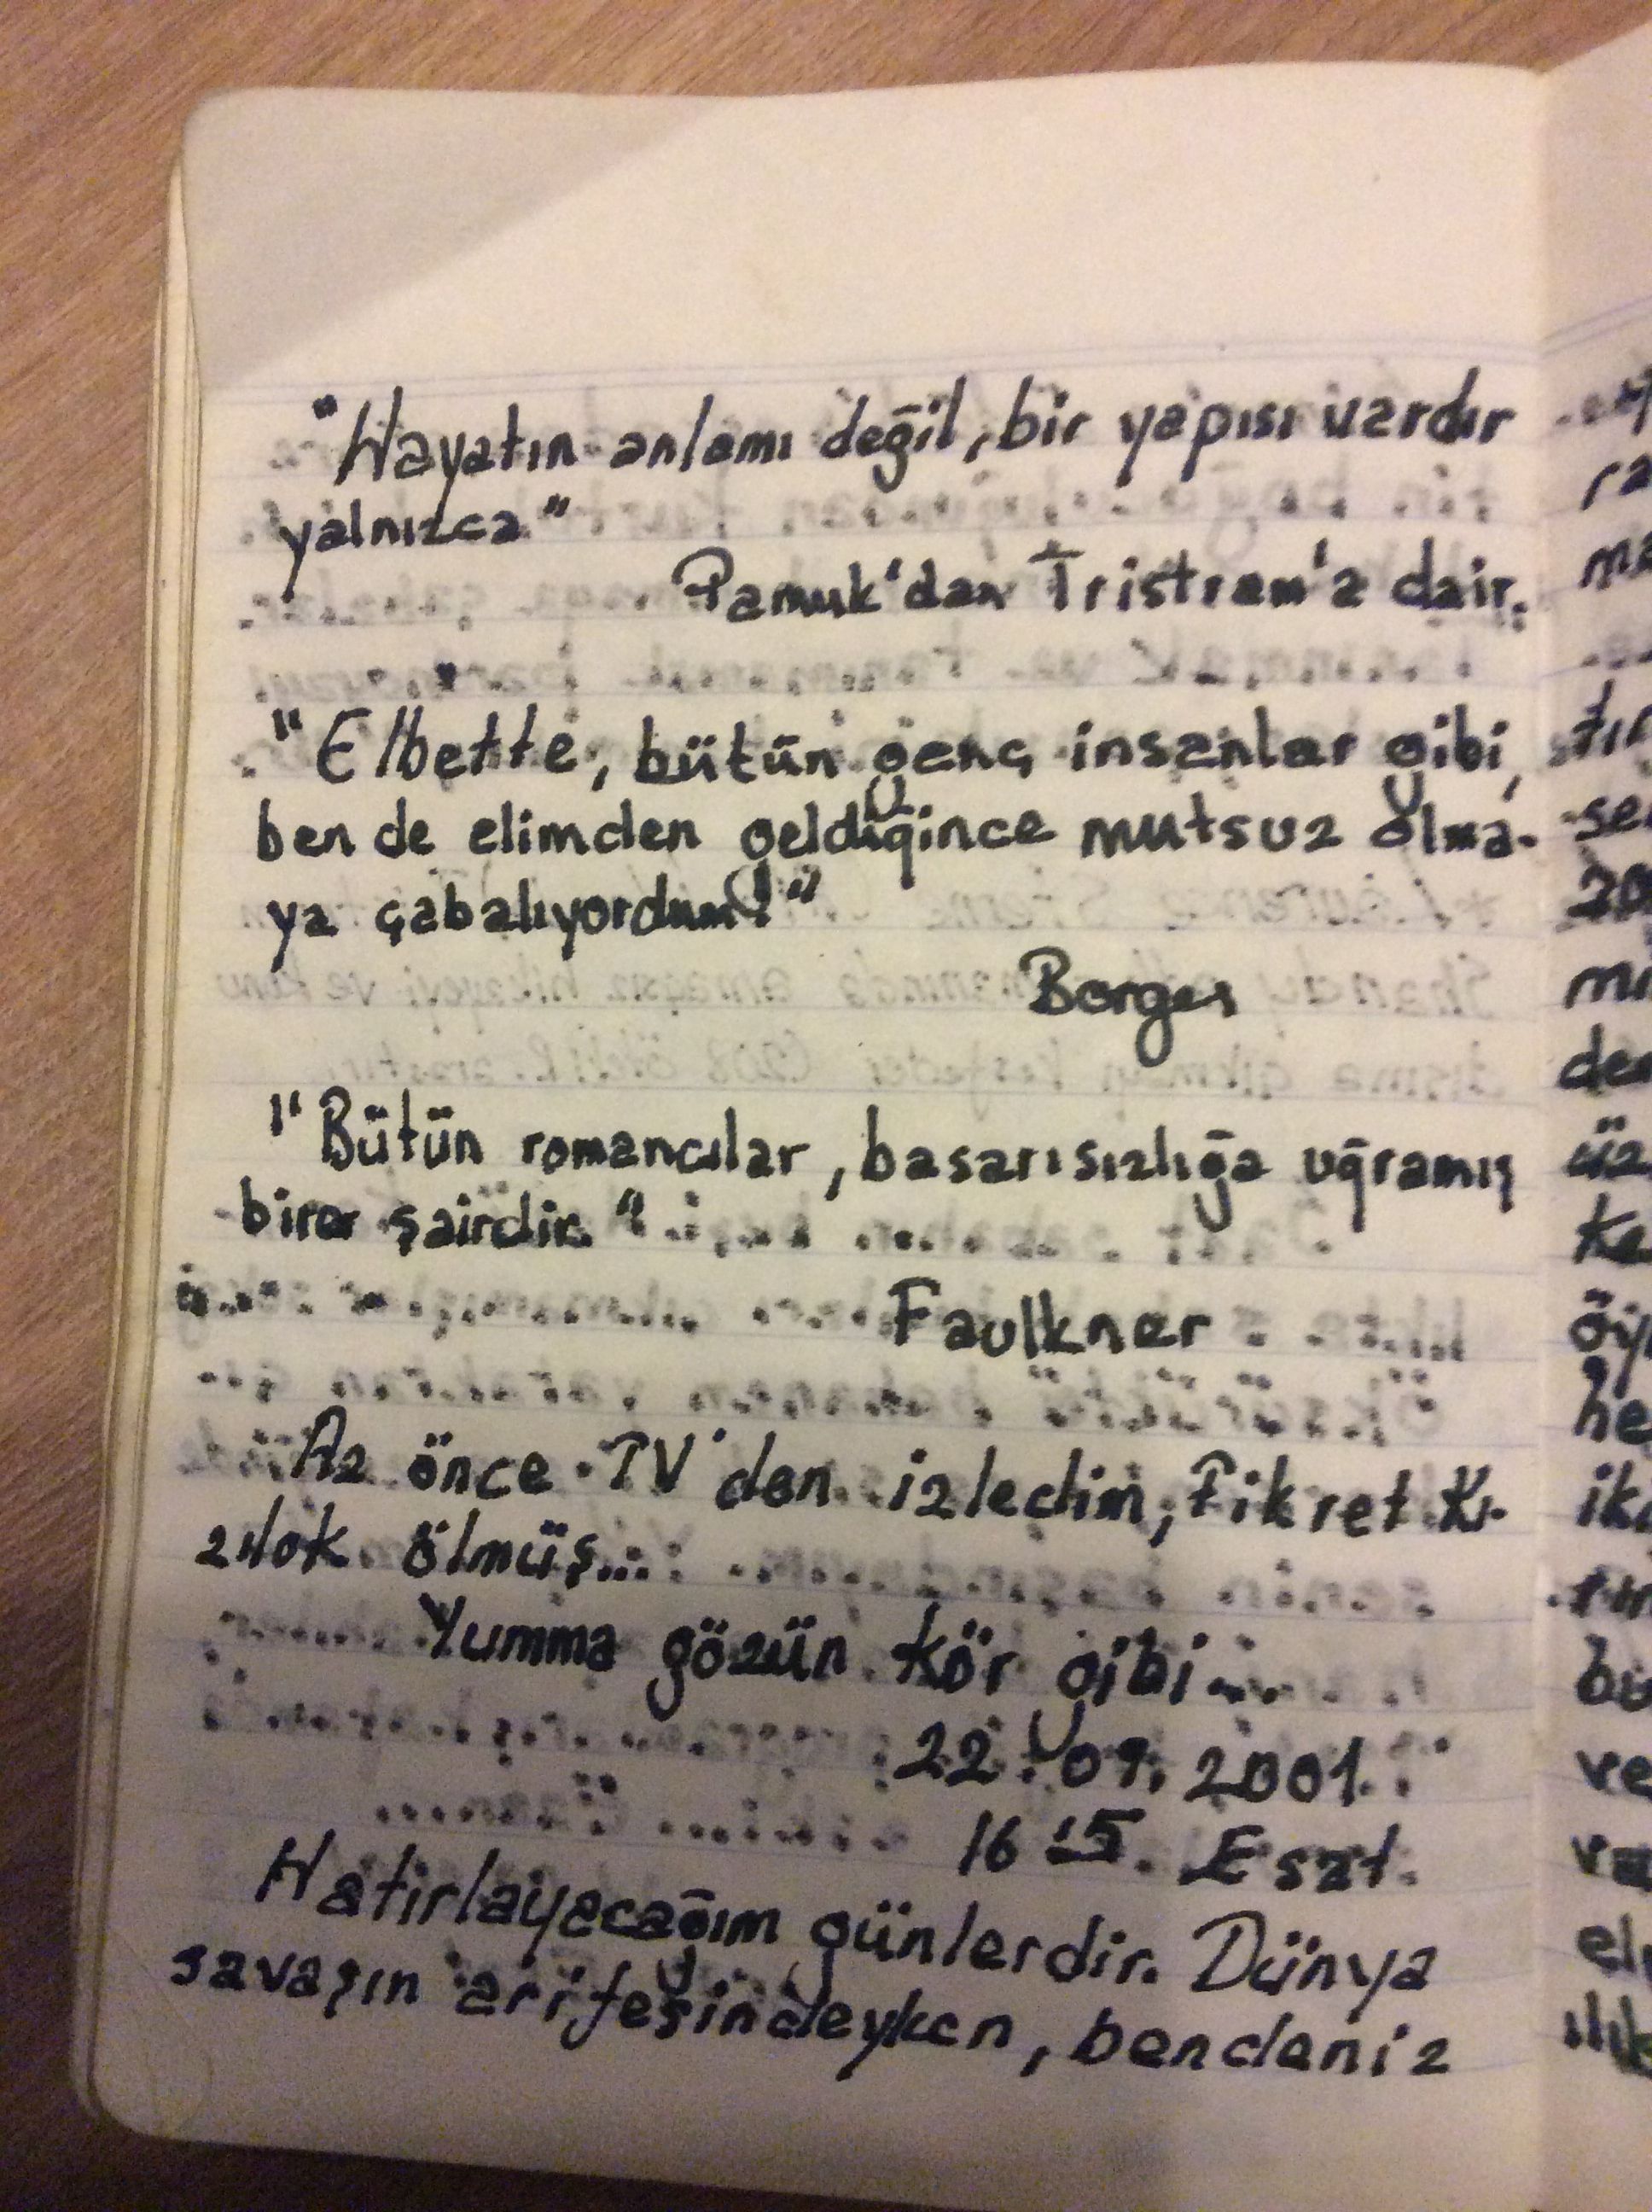 "Hayatın anlamı değil, bir yapısı vardır
yalnızca"
Pamuk'dan Tristram'a dair.
"Elbette, bütün genç insanlar gibi,
ben de elimden geldiğince mutsuz olma-
ya çabalıyordum!"
Borges
"Bütün romancılar, basarısızlığa uğramış
birer şairdir."
Faulkner
Az önce TV'den izledim, Fikret Kı-
zılok ölmüş...
Yumma gözün kör gibi...
22.09.2001.
16 15. Esat.
Hatırlayacağım günlerdir. Dünya
savaşın arifesindeyken, bendeniz